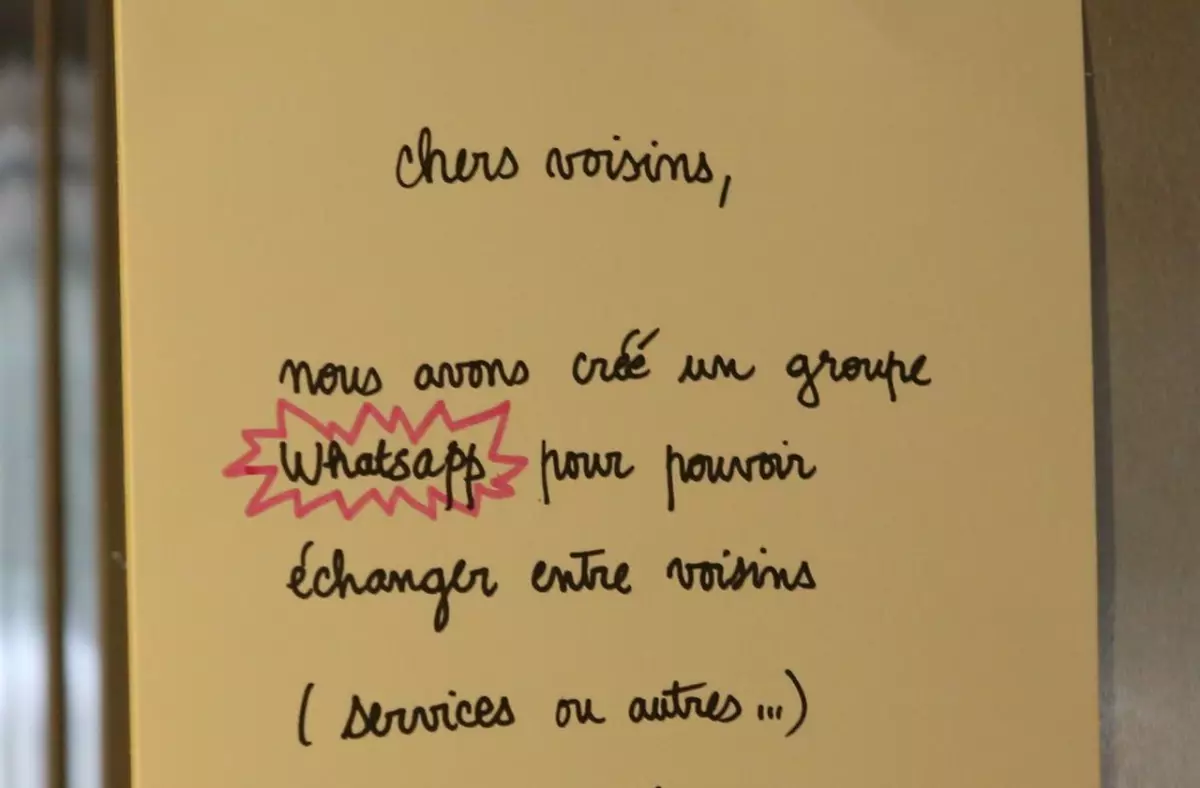 chers voisins,
nous avons créé un groupe
Whatsapp pour pouvoir
échanger entre voisins
( services ou autres ...)